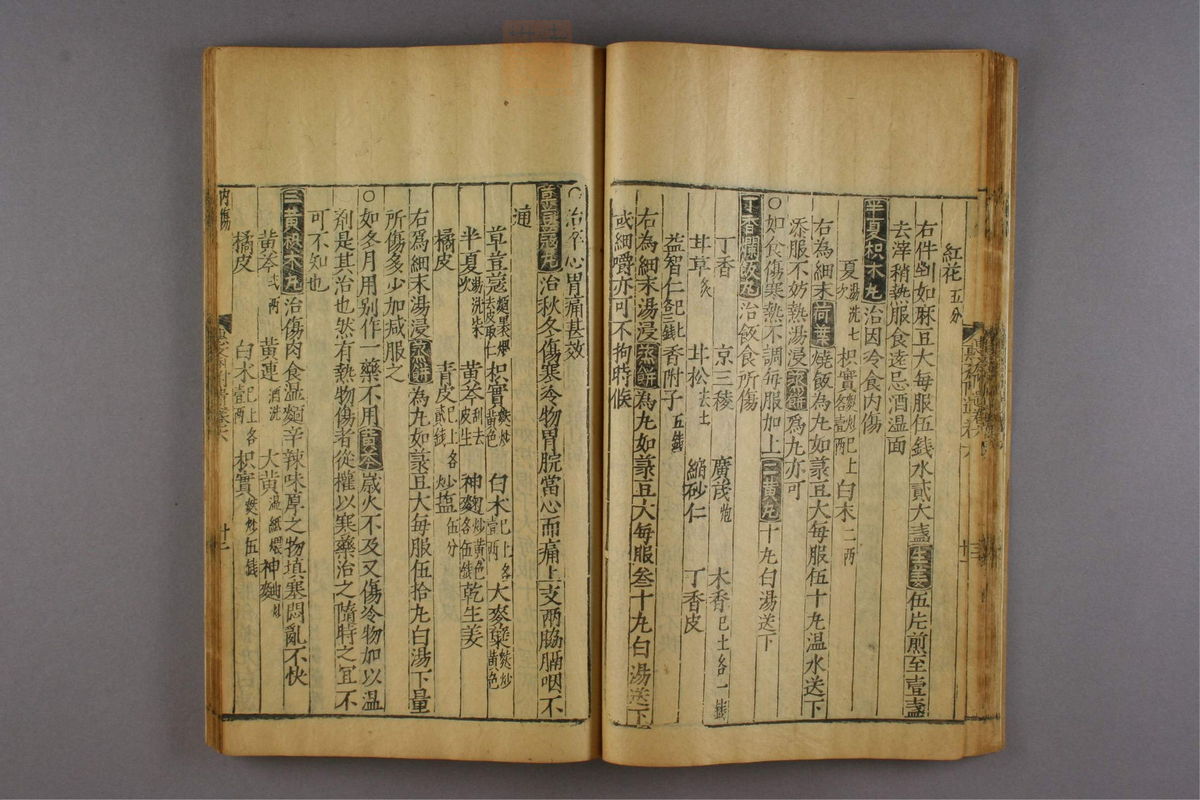 紅花五分
右件剉如麻豆大每服伍錢水貳大盞生姜伍片煎至壹盞
去滓稍熱服食遠忌酒溫面
半夏枳术丸治因冷食內傷
夏湯洗七次 枳實麩炒 已上各壹兩 白术二兩
右為細末荷葉燒飯為丸如菉豆大每服伍十丸溫水送下
添服不妨熱湯浸蒸餅為丸亦可
○如食傷寒熱不調每服加上二黃丸十丸白湯送下
丁香爛飯丸治飯食所傷
丁香 京三稜 廣茂炮 木香已上各一錢
甘草炙 甘松去土 縮砂仁 丁香皮
益智仁已上三錢 香附子五錢
右為細末湯浸蒸餅為丸如菉豆大每服叁十丸白湯送下
或細嚼亦可不拘時候
○治卒心胃痛甚效
草荳蔲丸治秋冬傷寒冷物胃脘當心而痛上支兩脇膈咽不
通
草荳蔲麵裹煨去皮取仁 枳實麩炒黃色 白术已上各壹兩 大麥蘗麩炒黃色
半夏湯洗柒次 黃芩刮去皮生 神麯炒黃色各伍錢 乾生姜
橘皮 青皮已上各貳錢 炒塩伍分
右爲細末湯浸蒸餅為丸如菉豆大每服伍拾丸白湯下量
所傷多少加减服之
○如冬月用别作一藥不用黃芩嵗火不及又傷冷物加以溫
劑是其治也然有熱物傷者從權以寒藥治之隨時之宜不
可不知也
三黃枳术丸治傷肉食溫麵辛辣味厚之物填塞悶亂不快
黃芩貳兩 黃連酒洗 大黃濕紙煨 神麯炒
橘皮 白术已上各壹兩 枳實麩炒伍錢
內傷
十二